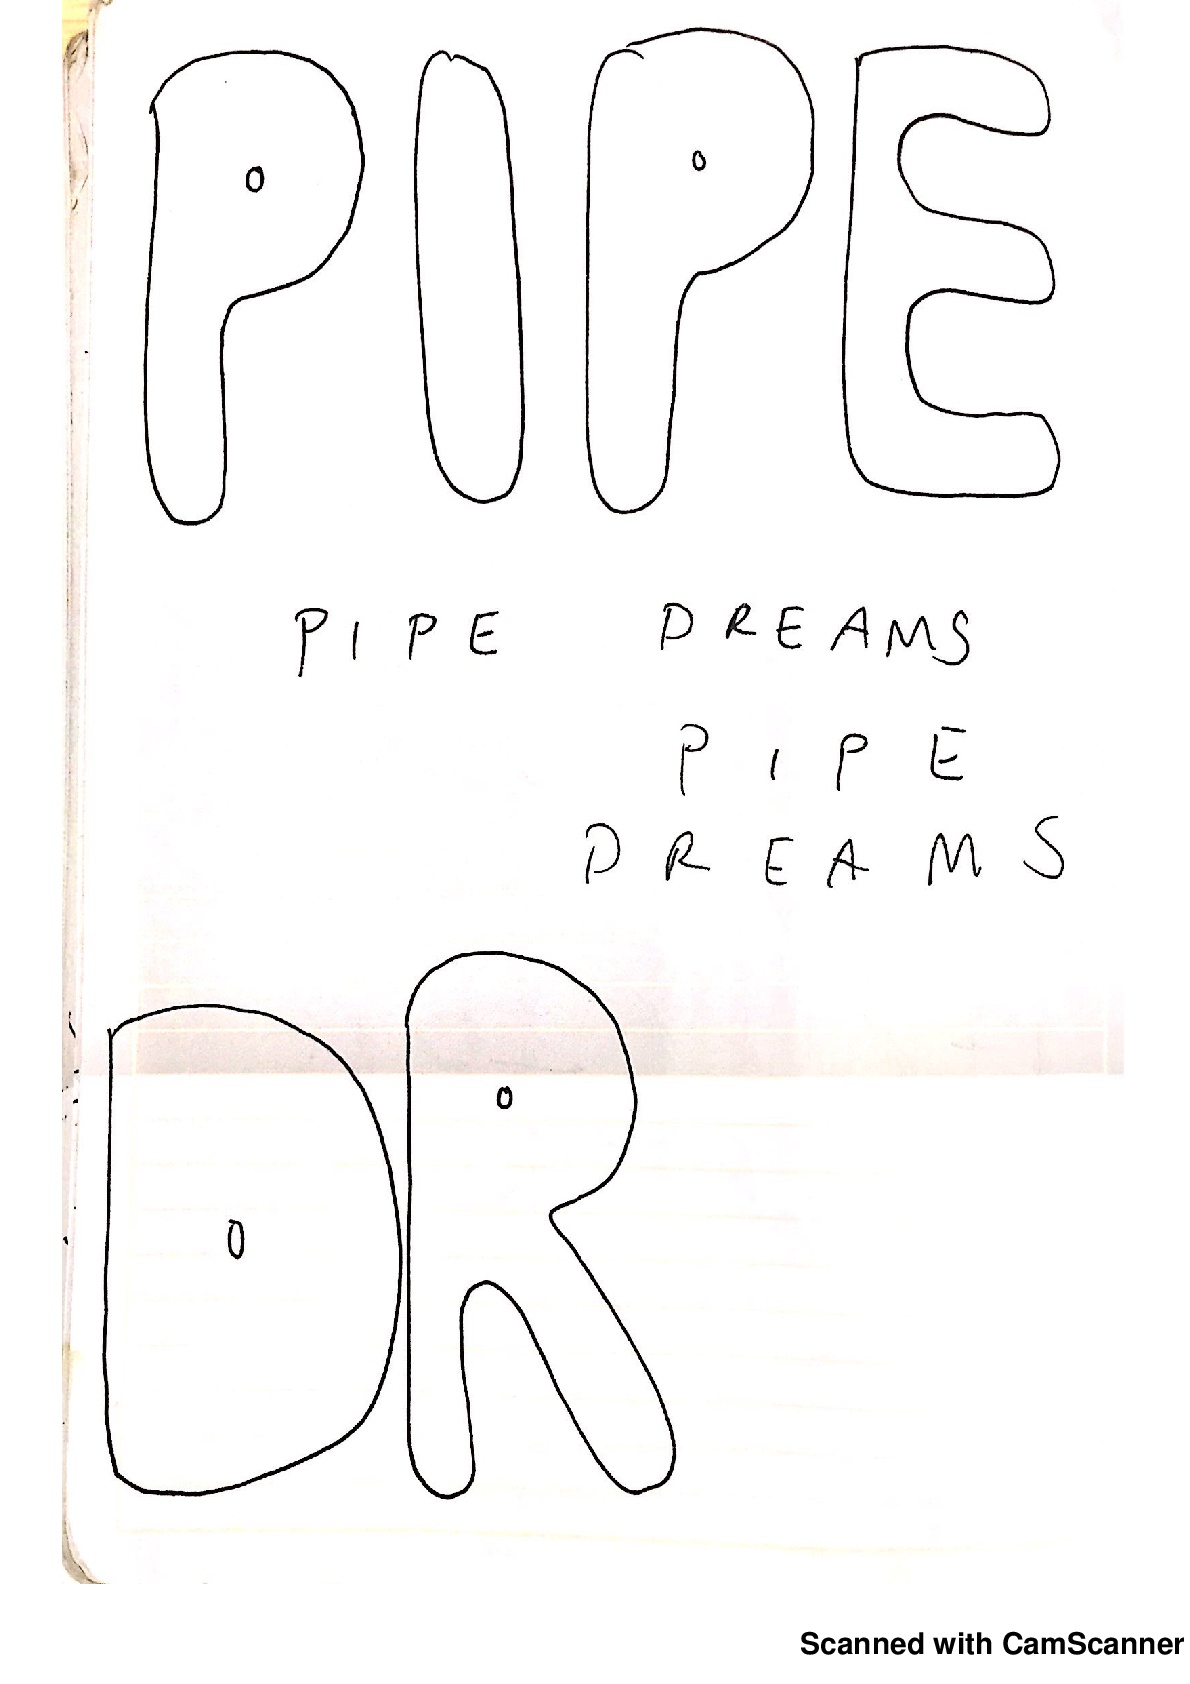 PIPE
PIPE DREAMS
PIPE
DREAMS
DR
Scanned with CamScanner